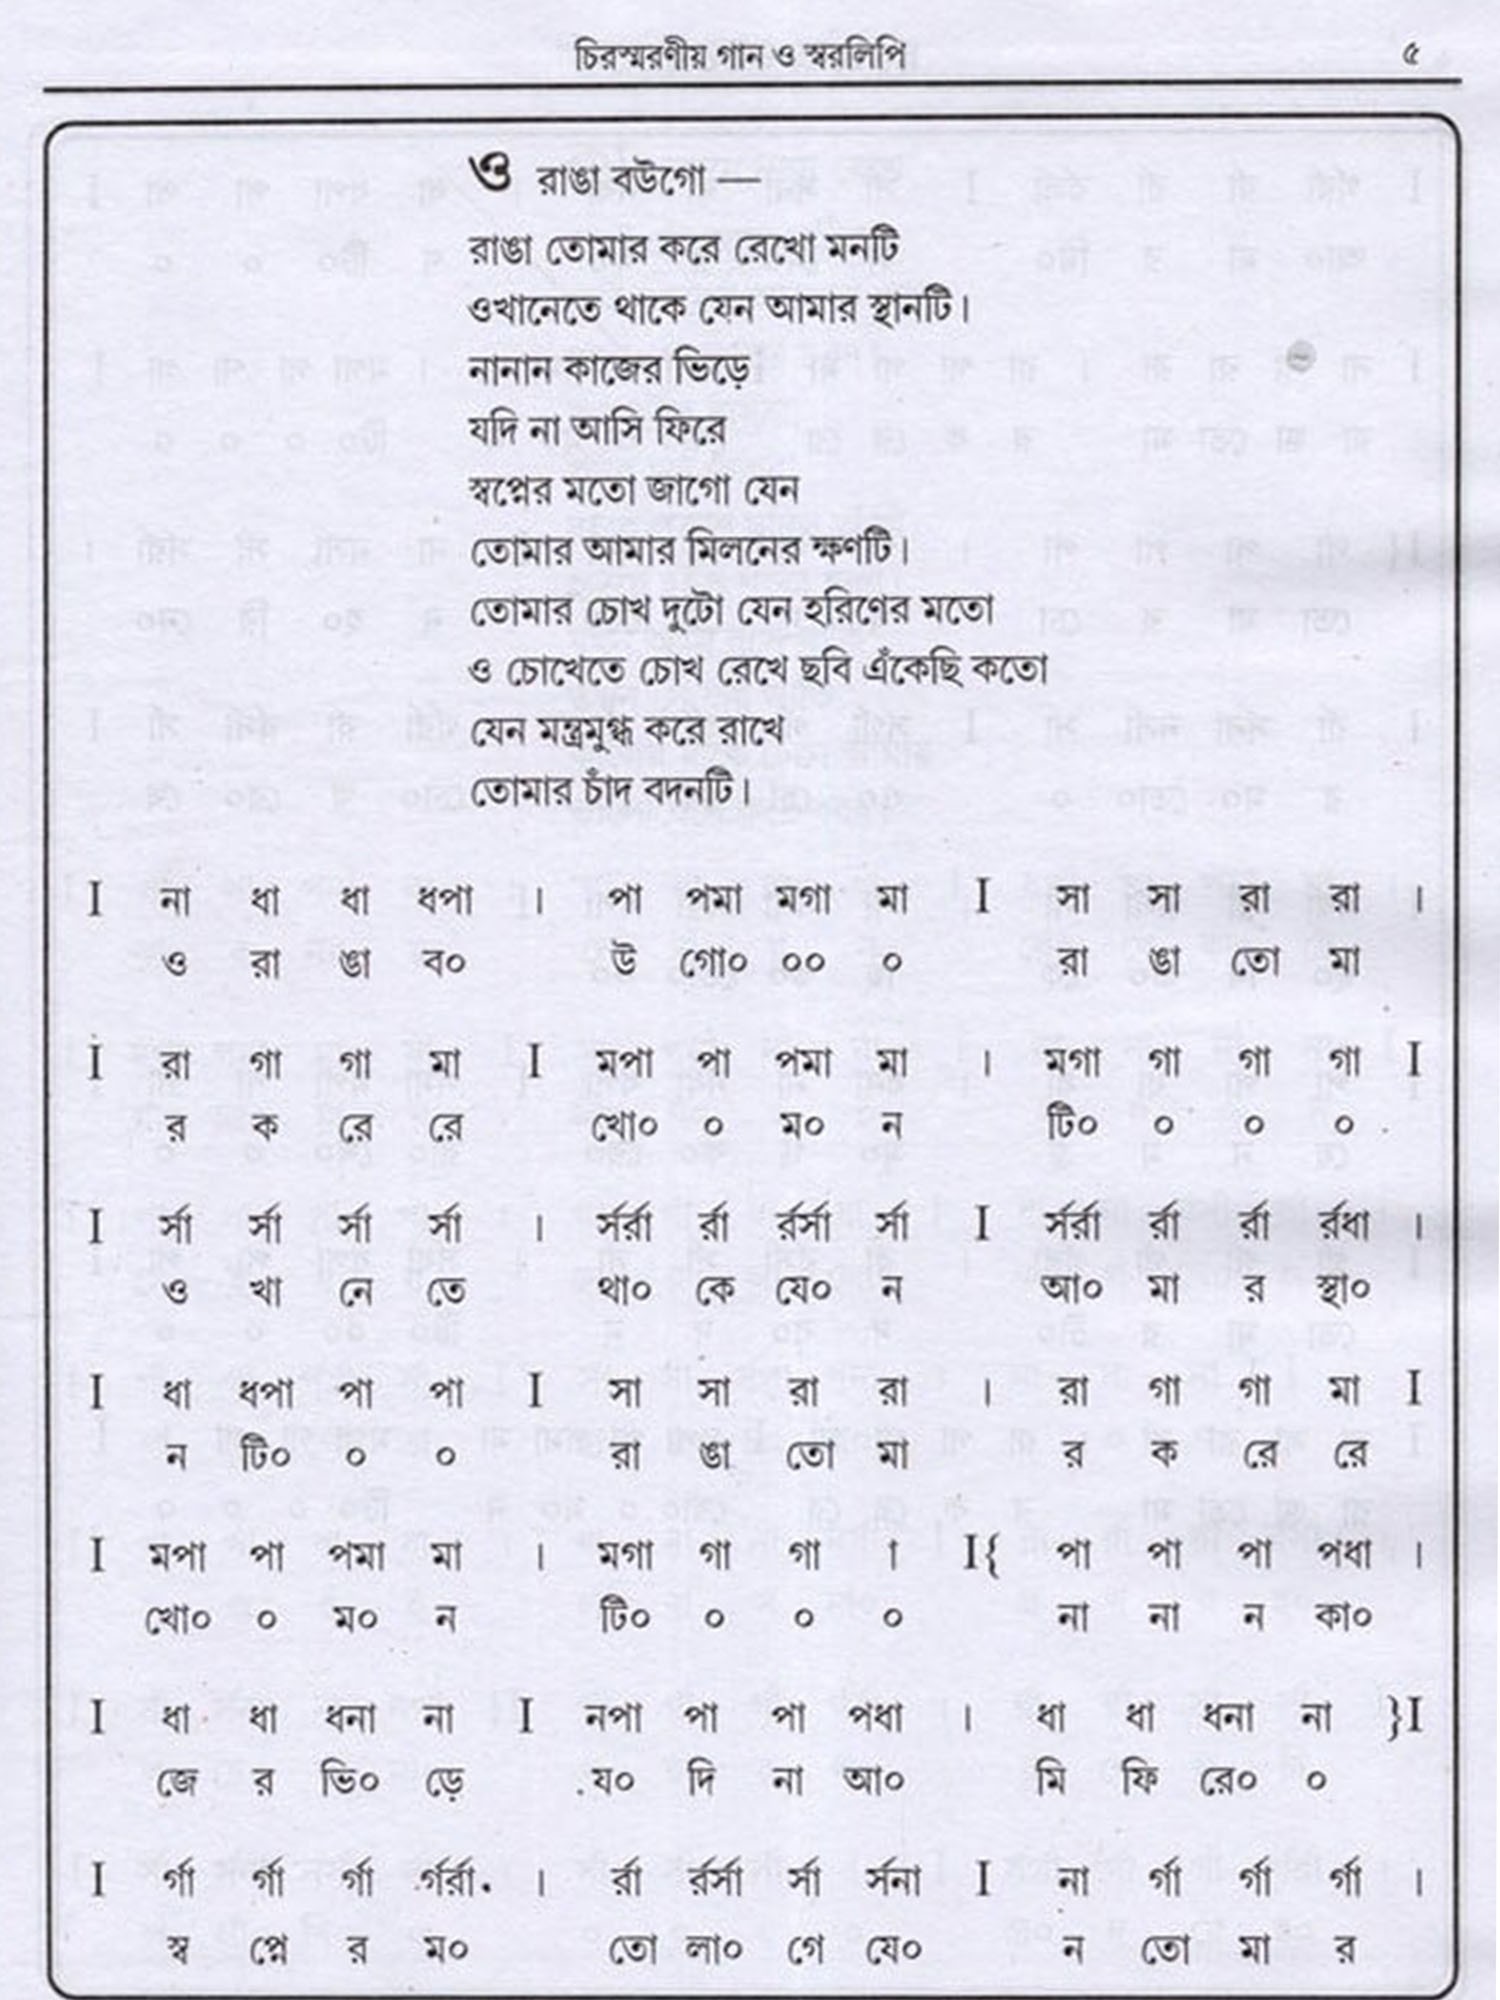 চিরস্মরণীয় গান ও স্বরলিপি ৫
ও রাঙা বউগো —
রাঙা তোমার করে রেখো মনটি
ওখানেতে থাকে যেন আমার স্থানটি।
নানান কাজের ভিড়ে
যদি না আসি ফিরে
স্বপ্নের মতো জাগো যেন
তোমার আমার মিলনের ক্ষণটি।
তোমার চোখ দুটো যেন হরিণের মতো
ও চোখেতে চোখ রেখে ছবি এঁকেছি কতো
যেন মন্ত্রমুগ্ধ করে রাখে
তোমার চাঁদ বদনটি।
I না ধা ধা ধপা । পা পমা মগা মা I সা সা রা রা ।
ও রা ঙা ব০ উ গো০ ০০ ০ রা ঙা তো মা
I রা গা গা মা I মপা পা পমা মা । মগা গা গা গা I
র ক রে রে খো০ ০ ম০ ন টি০ ০ ০ ০
I র্সা র্সা র্সা র্সা । র্সর্রা র্রা র্রর্সা র্সা I র্সর্রা র্রা র্রা র্রধা ।
ও খা নে তে থা০ কে যে০ ন আ০ মা র স্থা০
I ধা ধপা পা পা I সা সা রা রা । রা গা গা মা I
ন টি০ ০ ০ রা ঙা তো মা র ক রে রে
I মপা পা পমা মা । মগা গা গা া I{ পা পা পা পধা ।
খো০ ০ ম০ ন টি০ ০ ০ ০ না না ন কা০
I ধা ধা ধনা না I নপা পা পা পধা । ধা ধা ধনা না }I
জে র ভি০ ড়ে য০ দি না আ০ মি ফি রে০ ০
I র্গা র্গা র্গা র্গর্রা । র্রা র্রর্সা র্সা র্সনা I না র্গা র্গা র্গা ।
স্ব প্নে র ম০ তো লা০ গে যে০ ন তো মা র